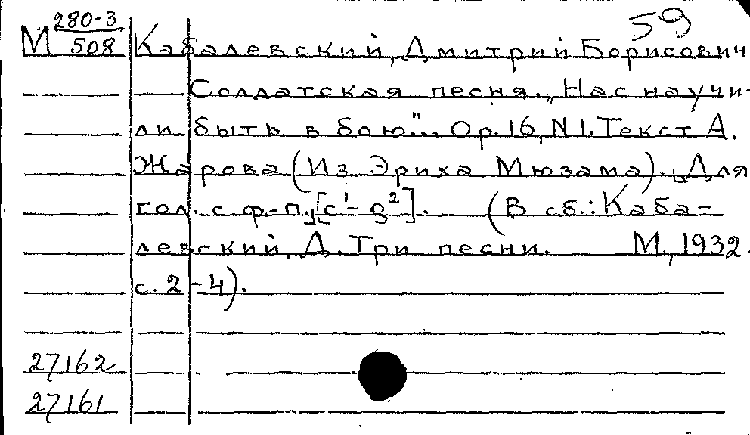 59
М 280-3/508 Кабалевский, Дмитрий Борисович
Солдатская песня. „Нас научи-
ли быть в бою"... Ор.16, N 1. Текст А.
Жарова (Из Эриха Мюзама). Для
гол. с ф.-п., [c¹-g²]. (В сб.: Каба-
левский, Д. Три песни. М., 1932.
с. 2-4).
27162
27161